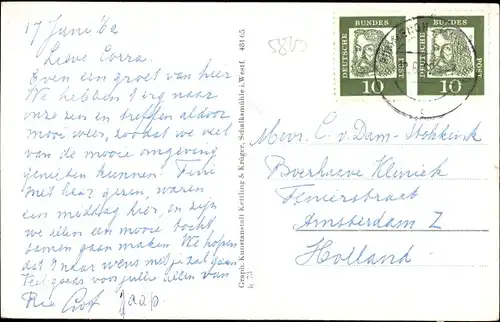 17 Juni '62
Lieve Corra.
Even een groet van hier
We hebben 't erg naar
onze zin en treffen aldoor
mooi weer, zoodat we veel
van de mooie omgeving
genieten kunnen. Fine
met haar gezin, waren
een middag hier, en zijn
we een mooie tocht
samen gaan maken. We hopen
dat 't naar wens met je zal gaan
Veel goeds voor jullie allen van
Ria Jaap
Graph. Kunstanstalt Kettling & Krüger, Schalksmühle i. Westf. 48165
5823
DEUTSCHE BUNDES POST 10
DEUTSCHE BUNDES POST 10
Mevr. C. v. Dam-
Boerhaave Kliniek
Teniersstraat
Amsterdam Z
Holland.